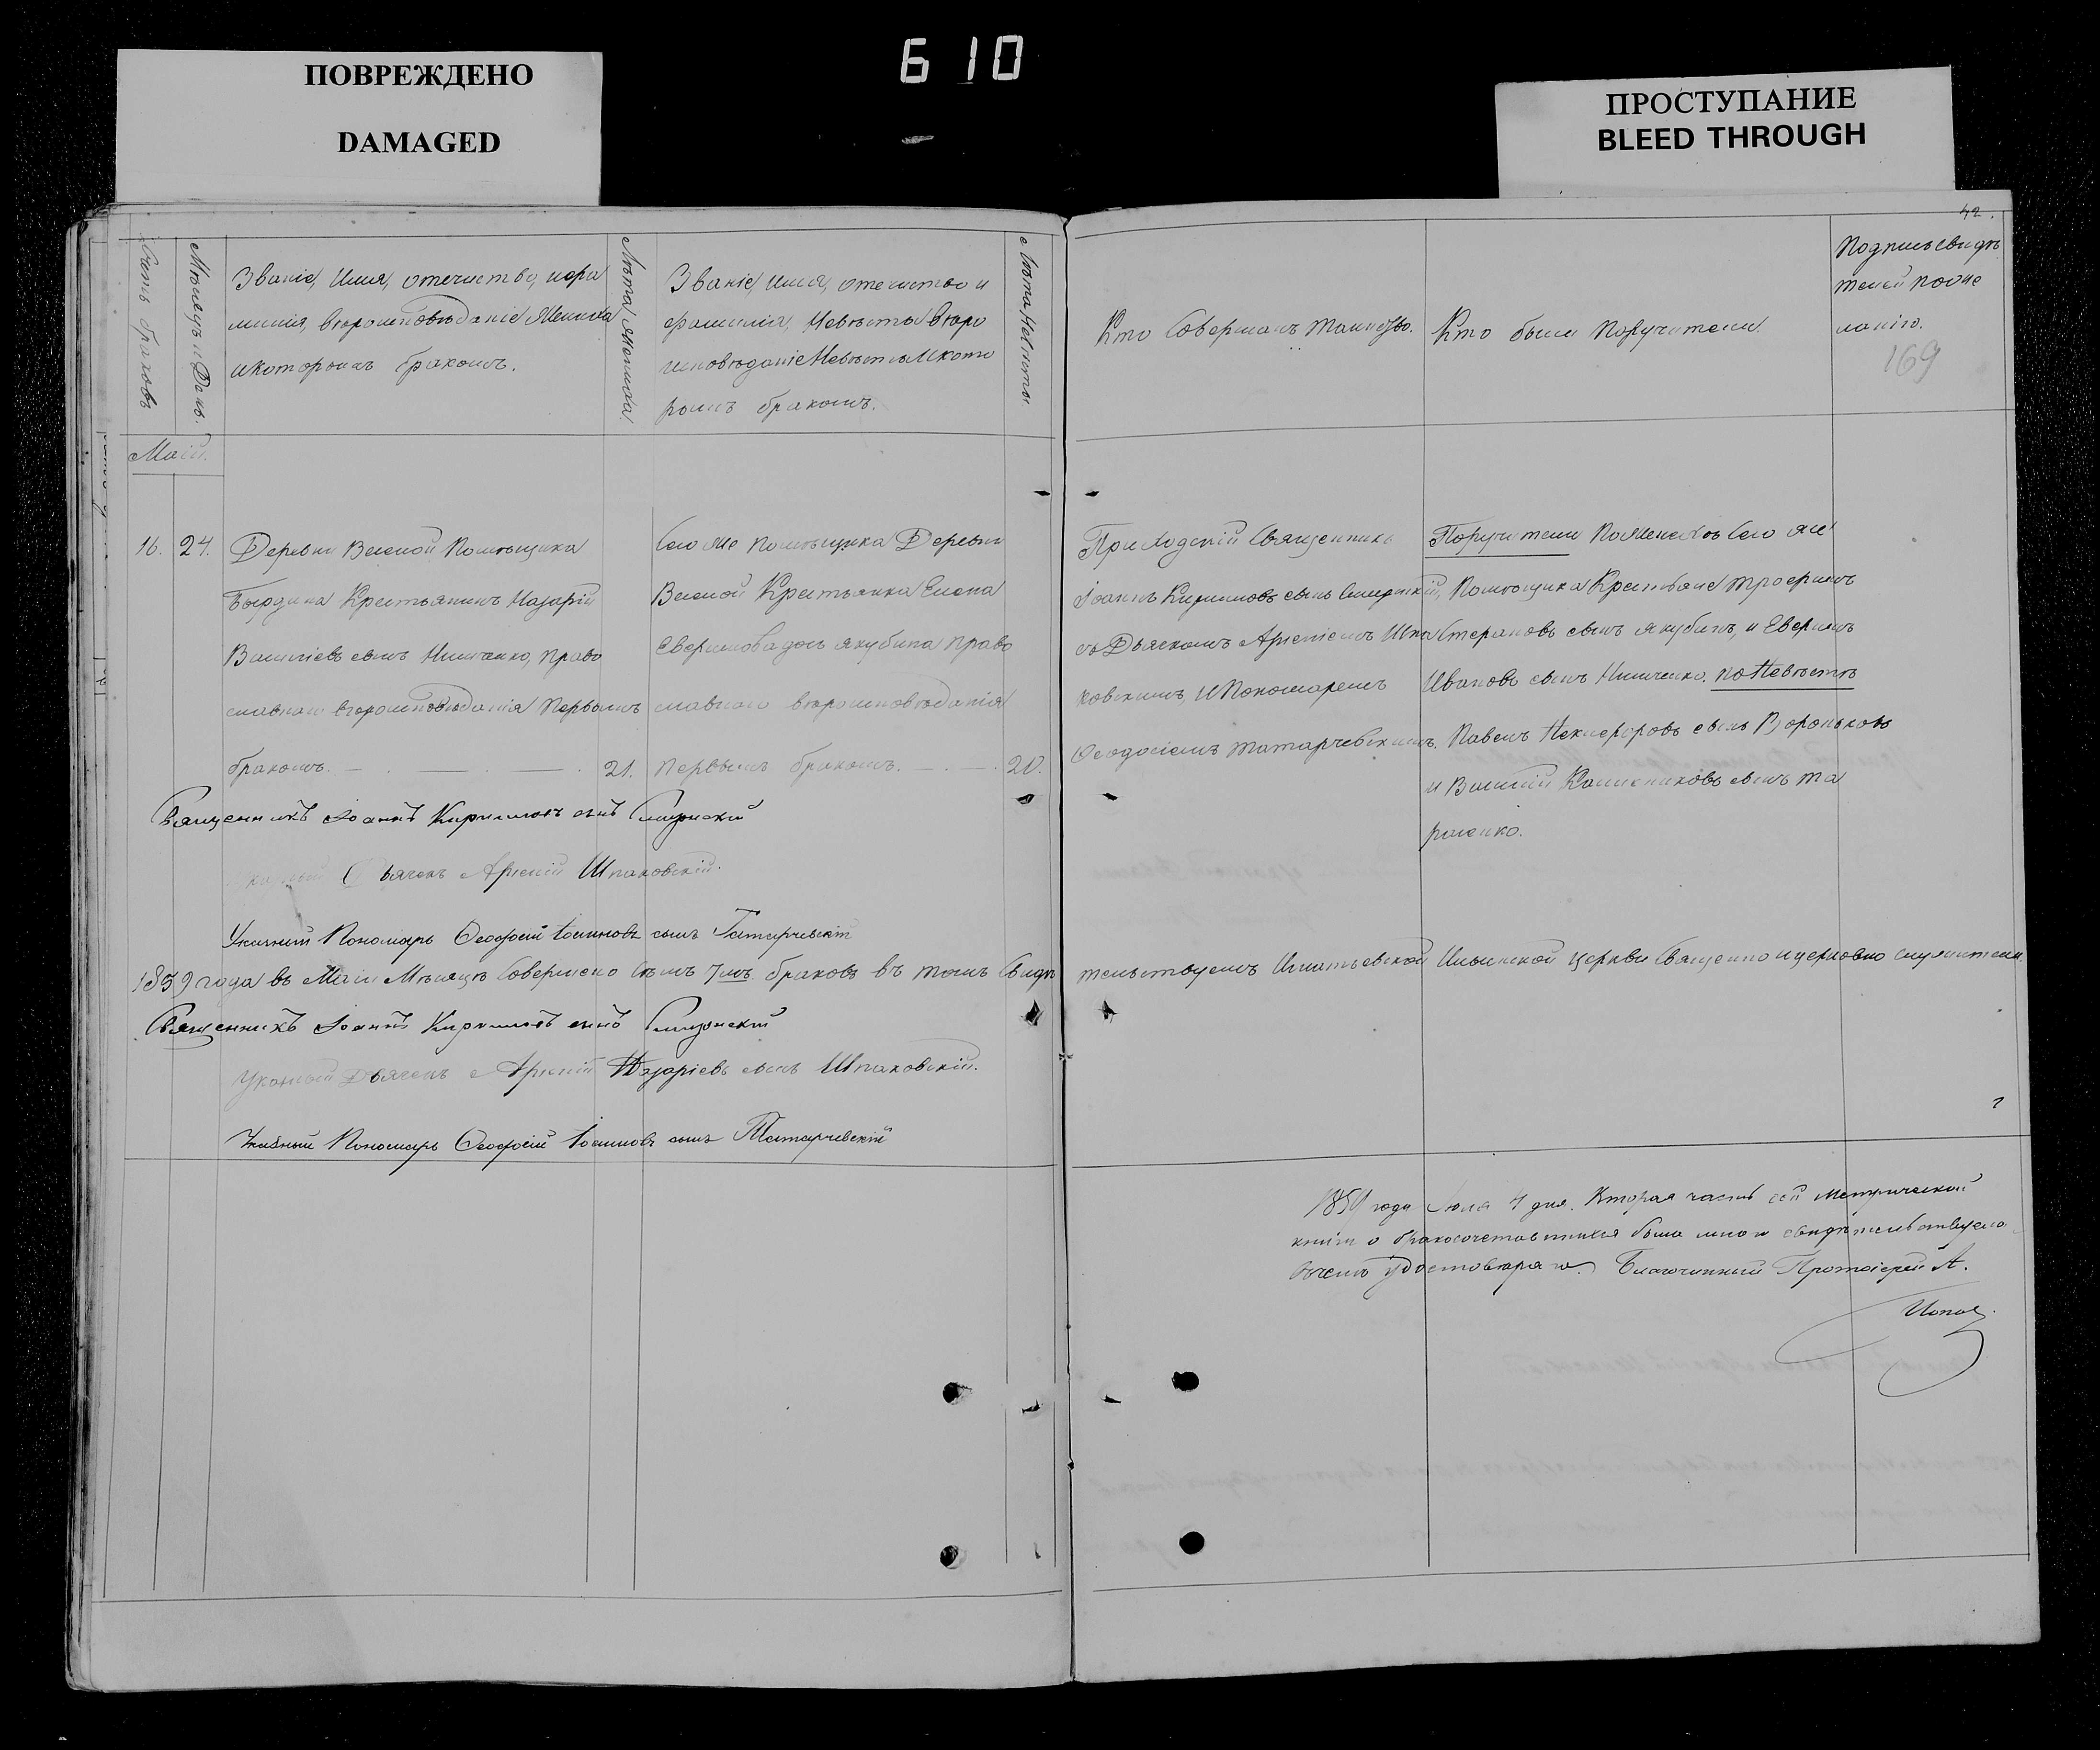 610
ПОВРЕЖДЕНО
DAMAGED
ПРОСТУПАНИЕ
BLEED THROUGH
42.
Счетъ браковъ
Мѣсяцъ и День.
Званіе, Имя, отечество, и фа
милія, вѣроисповѣданіе Жениха
и которымъ бракомъ.
Лѣта Жениха
Званіе, имя, отечество и
фамилія, Невѣсты вѣро
исповѣданіе Невѣсты и кото
рымъ бракомъ.
Лѣта Невѣсты
Кто Совершалъ таинство.
Кто были Поручители
Подпись Свидѣ
телей по же
ланію.
169
Маій.
16.
24.
Деревни Помѣщика
Крестьянинъ Назарій
Василіевъ сынъ Нимченко, право
славнаго вѣроисповѣданія Первымъ
бракомъ.
21.
Сего же помѣщика Деревни
Крестьянка Елена
дочь Якубина право
славнаго вѣроисповѣданія
первымъ бракомъ.
20.
Приходскій Священникъ
Іоаннъ Кирилловъ сынъ
съ Дьячкомъ Арсеніемъ Шпа
ковскимъ, и Пономаремъ
Ѳеодосіемъ Татарчевскимъ.
Поручители По Женихѣ Сего же
Помѣщика Крестьяне Трофимъ
Стефановъ сынъ Якубинъ, и Евфимъ
Ивановъ сынъ Нимченко. по Невѣстѣ
Павелъ Некифоровъ сынъ Вороньковъ
и Василій сынъ Та
расенко.
Священникъ Іоаннъ Кирилловъ сынъ
Дьячекъ Арсеній Шпаковскій.
Указный Пономарь Ѳеодосій Іоанновъ сынъ Татарчевскій
1859 года въ Маіи Мѣсяцѣ Совершено Семь 7мь браковъ въ томъ Свидѣ
тельствуемъ Игнатьевской Ильинской церкви Священно и церковно служители.
Священникъ Іоаннъ Кирилловъ сынъ
Указный Дьячекъ Арсеній Назаріевъ сынъ Шпаковскій.
Указный Пономарь Ѳеодосій Іоанновъ сынъ Татарчевскій
1859 года Іюля 7 дня. Вторая часть сей метрической
книги о бракосочетавшихся была мною свидѣтельствуема
въ чемъ удостовѣряю. Благочинный Протоіерей А.